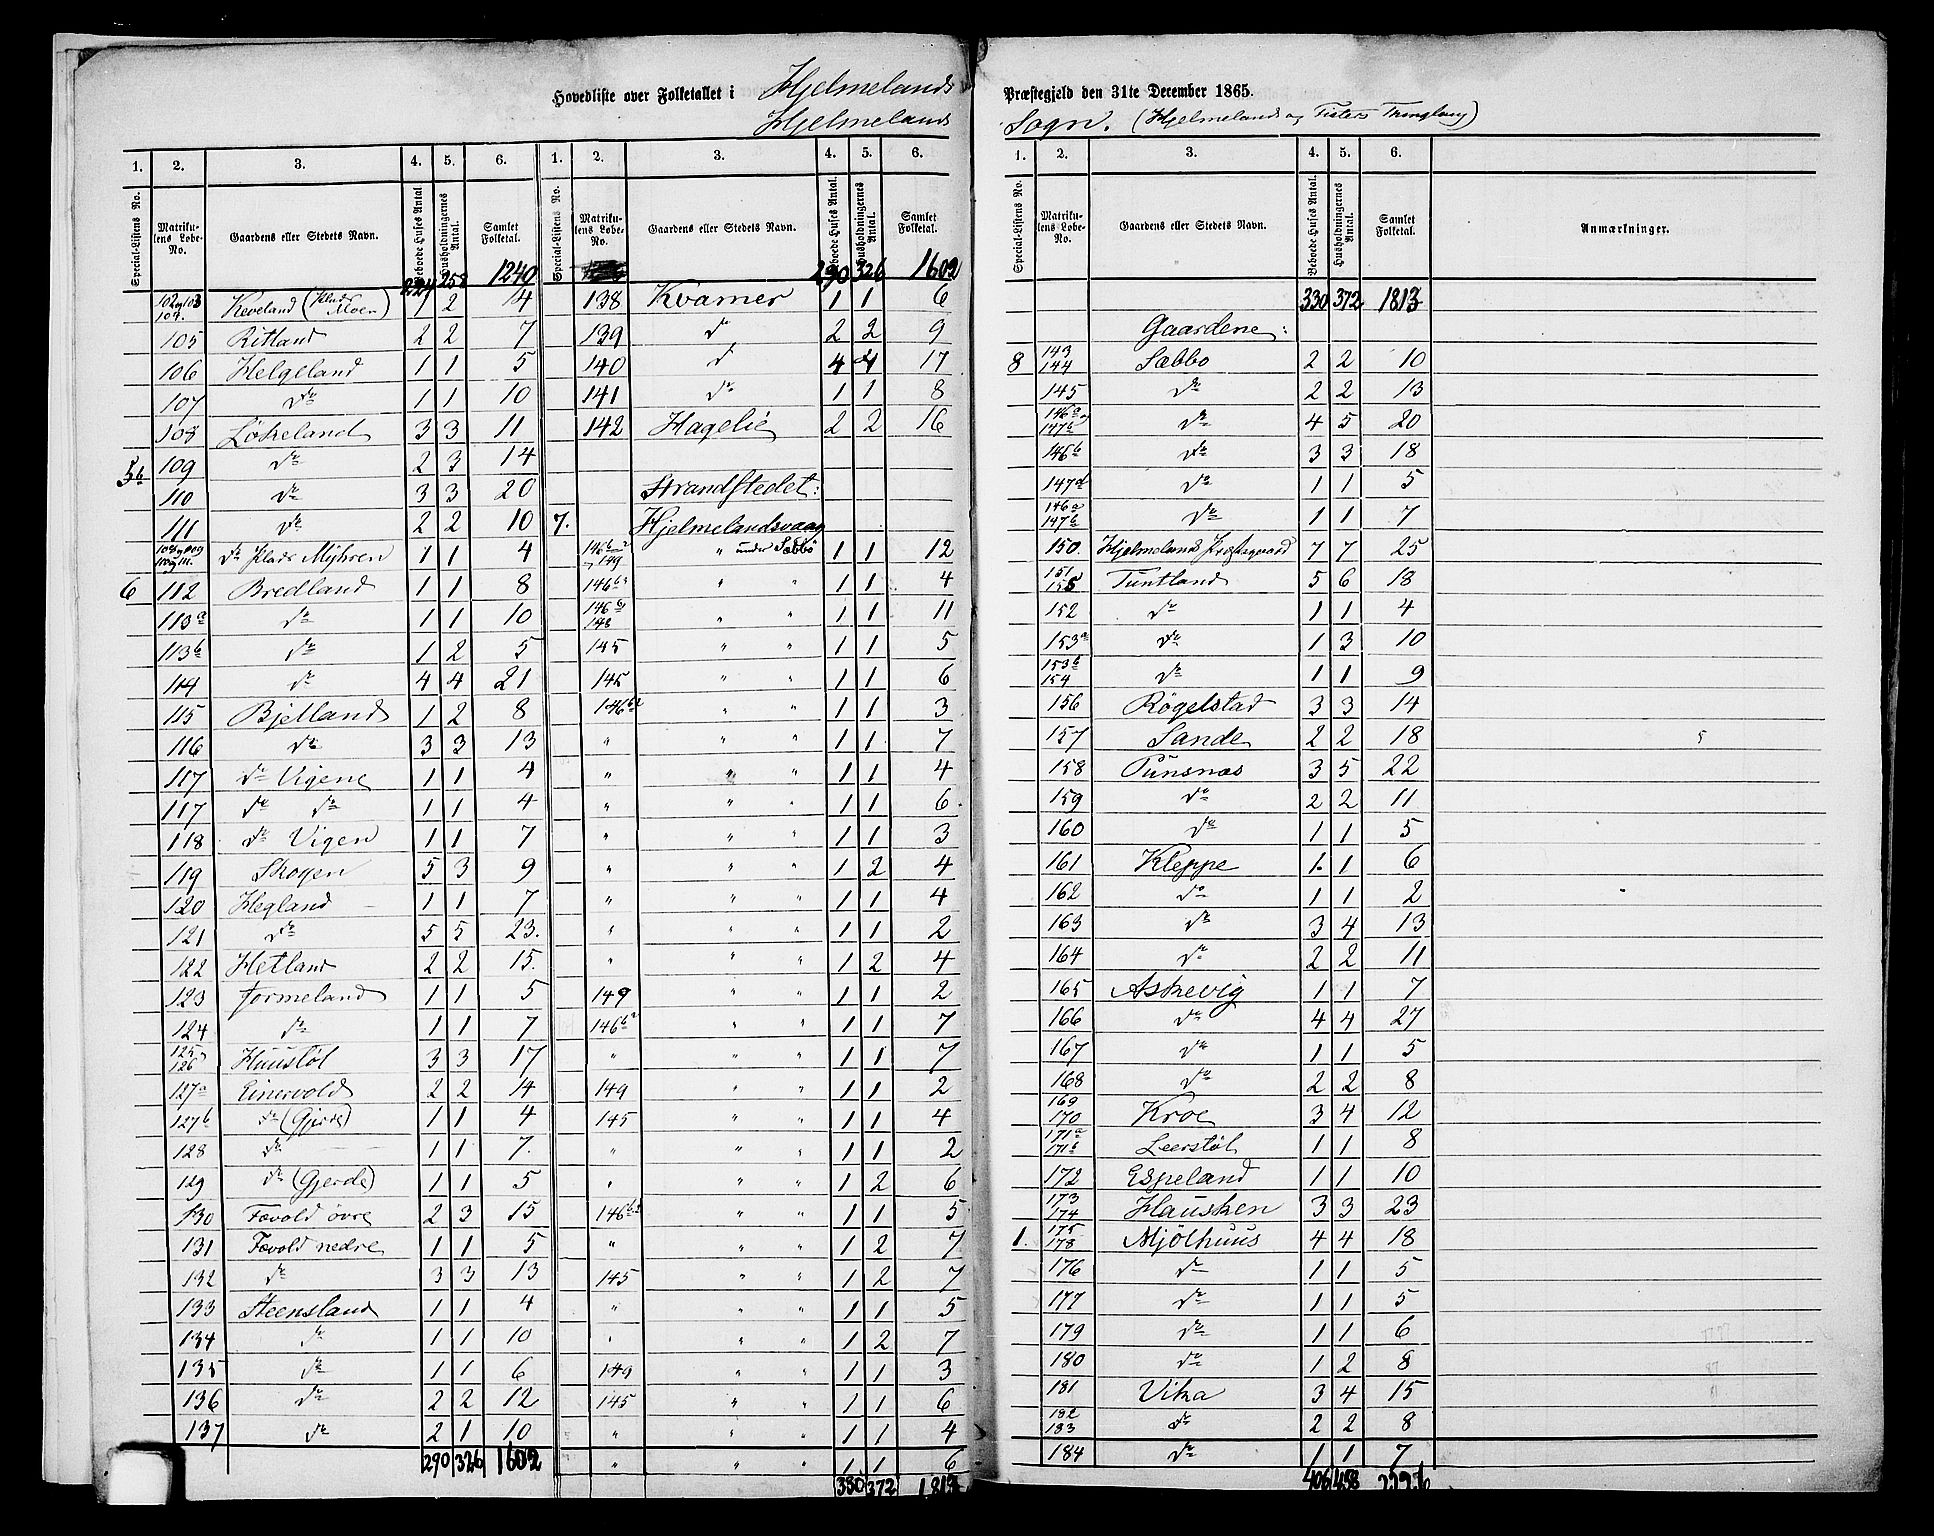 Hovedliste over Folketallet i Hjelmelands Præstegjeld den 31te December 1865.
Hjelmelands Sogn. (Hjelmelands og Fisters Thinglaug)
1. 2. 3. 4. 5. 6.
Special-Listens No. Matrikulens Løbe-No. Gaardens eller Stedets Navn. Beboede Huses Antal. Husholdningernes Antal. Samlet Folketal.
224 258 1240
102 og 103 104. Keveland (Plads Moen) 1 2 4
105 Ritland 2 2 7
106 Helgeland 1 1 5
107 do 1 1 10
108 Løkeland 3 3 11
5b 109 do 2 3 14
110 do 3 3 20
111 do 2 2 10
do Plads Myhren 1 1 4
6 112 Bredland 1 1 8
113a do 1 1 10
113b do 1 2 5
114 do 4 4 21
115 Bjelland 1 2 8
116 do 3 3 13
117 do Vigene 1 1 4
117 do do 1 1 4
118 do Vigen 1 1 7
119 Skogen 5 3 9
120 Hegland 1 1 7
121 do 5 5 23.
122 Hetland 2 2 15.
123 Jormeland 1 1 5
124 do 1 1 7
125 og 126 Huustøl 3 3 17
127a Einervold 2 2 14
127b do (Gjerde) 1 1 4
128 do 1 1 7.
129 do (Gjerde) 1 1 5
130 Fævold øvre 2 3 15
131 Fævold nedre 1 1 5
132 do 3 3 13
133 Steensland 1 1 4
134 do 1 1 10
135 do 1 1 6
136 do 2 2 12
137 do 2 1 10
290 326 1602
1. 2. 3. 4. 5. 6.
Special-Listens No. Matrikulens Løbe-No. Gaardens eller Stedets Navn. Beboede Huses Antal. Husholdningernes Antal. Samlet Folketal.
290 326 1602
138 Kvamer 1 1 6
139 do 2 2 9
140 do 4 4 17
141 do 1 1 8
142 Hagelie 2 2 16
Strandstedet:
7. Hjelmelandsvaag
146b2 og 149 " under Sæbbø 1 1 12
146b2 " " 1 1 4
146b 148 " " 1 1 11
145 " " 1 1 5
145 " " 1 1 6
146b2 " " 1 1 3
" " " 1 1 7
" " " 1 1 4
" " " 1 1 6.
" " " 1 1 3
" " " 1 2 4
" " " 1 1 4
" " " 1 1 2
" " " 1 2 4
149 " " 1 1 2
146b2 " " 1 1 7
" " " 1 1 7
149 " " 1 1 2
145 " " 1 1 4
" " " 1 1 2
" " " 1 2 6
146b2 " " 1 1 5
" " " 1 2 7
145 " " 1 2 7
" " " 1 1 5
" " " 1 2 7
149 " " 1 1 3
145 " " 1 1 6
" " " 1 1 4
" " " 1 1 6
330 372 1813
1. 2. 3. 4. 5. 6.
Special-Listens No. Matrikulens Løbe-No. Gaardens eller Stedets Navn. Beboede Huses Antal. Husholdningernes Antal. Samlet Folketal. Anmærkninger.
330 372 1813
Gaardene:
8 143 144 Sæbbø 2 2 10
145 do 2 2 13
146a og 147c do 4 5 20
146b do 3 3 18
147d do 1 1 5
146a 147b do 1 1 7
150. Hjelmelands Præstegaard 7 7 25
151 155 Tuntland 5 6 18
152 do 1 1 4
153a do 1 3 10
153b 154 do 1 1 9
156 Røgelstad 3 3 14
157 Sande 2 2 18 5
158 Punsnæs 3 5 22
159 do 2 2 11
160 do 1 1 5
161 Kleppe 1. 1 6
162 do 1 1 2
163 do 3 4 13
164 do 2 2 11
165 Askevig 1 1 7
166 do 4 4 27
167 do 1 1 5
168 do 2 2 8
169 170 Kroe 3 4 12
171a 171b Leerstøl 1 1 8
172 Espeland 1 1 10
173 174 Hausken 3 3 23
1. 175 178 Mjølhuus 4 4 18
176 do 1 1 5
177 do 1 1 5
179 do 1 1 6
180 do 1 2 8
181 Vika 3 4 15
182 183 do 2 2 8
184 do 1 1 7
406 458 2226